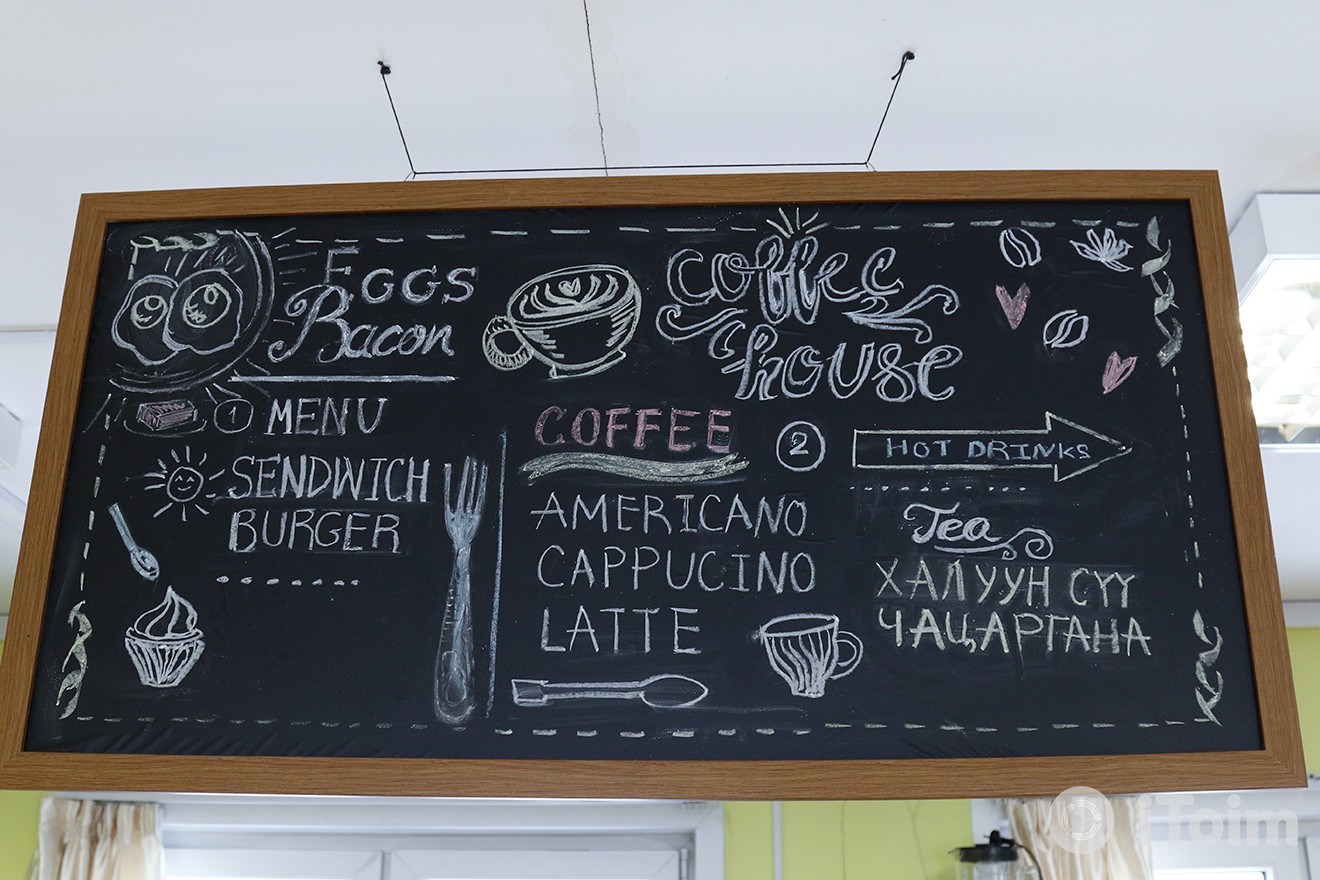 EGGS
Bacon
coffee
house
1 MENU
SENDWICH
BURGER
COFFEE
AMERICANO
CAPPUCINO
LATTE
2 HOT DRINKS
Tea
ХАЛУУН СҮҮ
ЧАЦАРГАНА
iToim